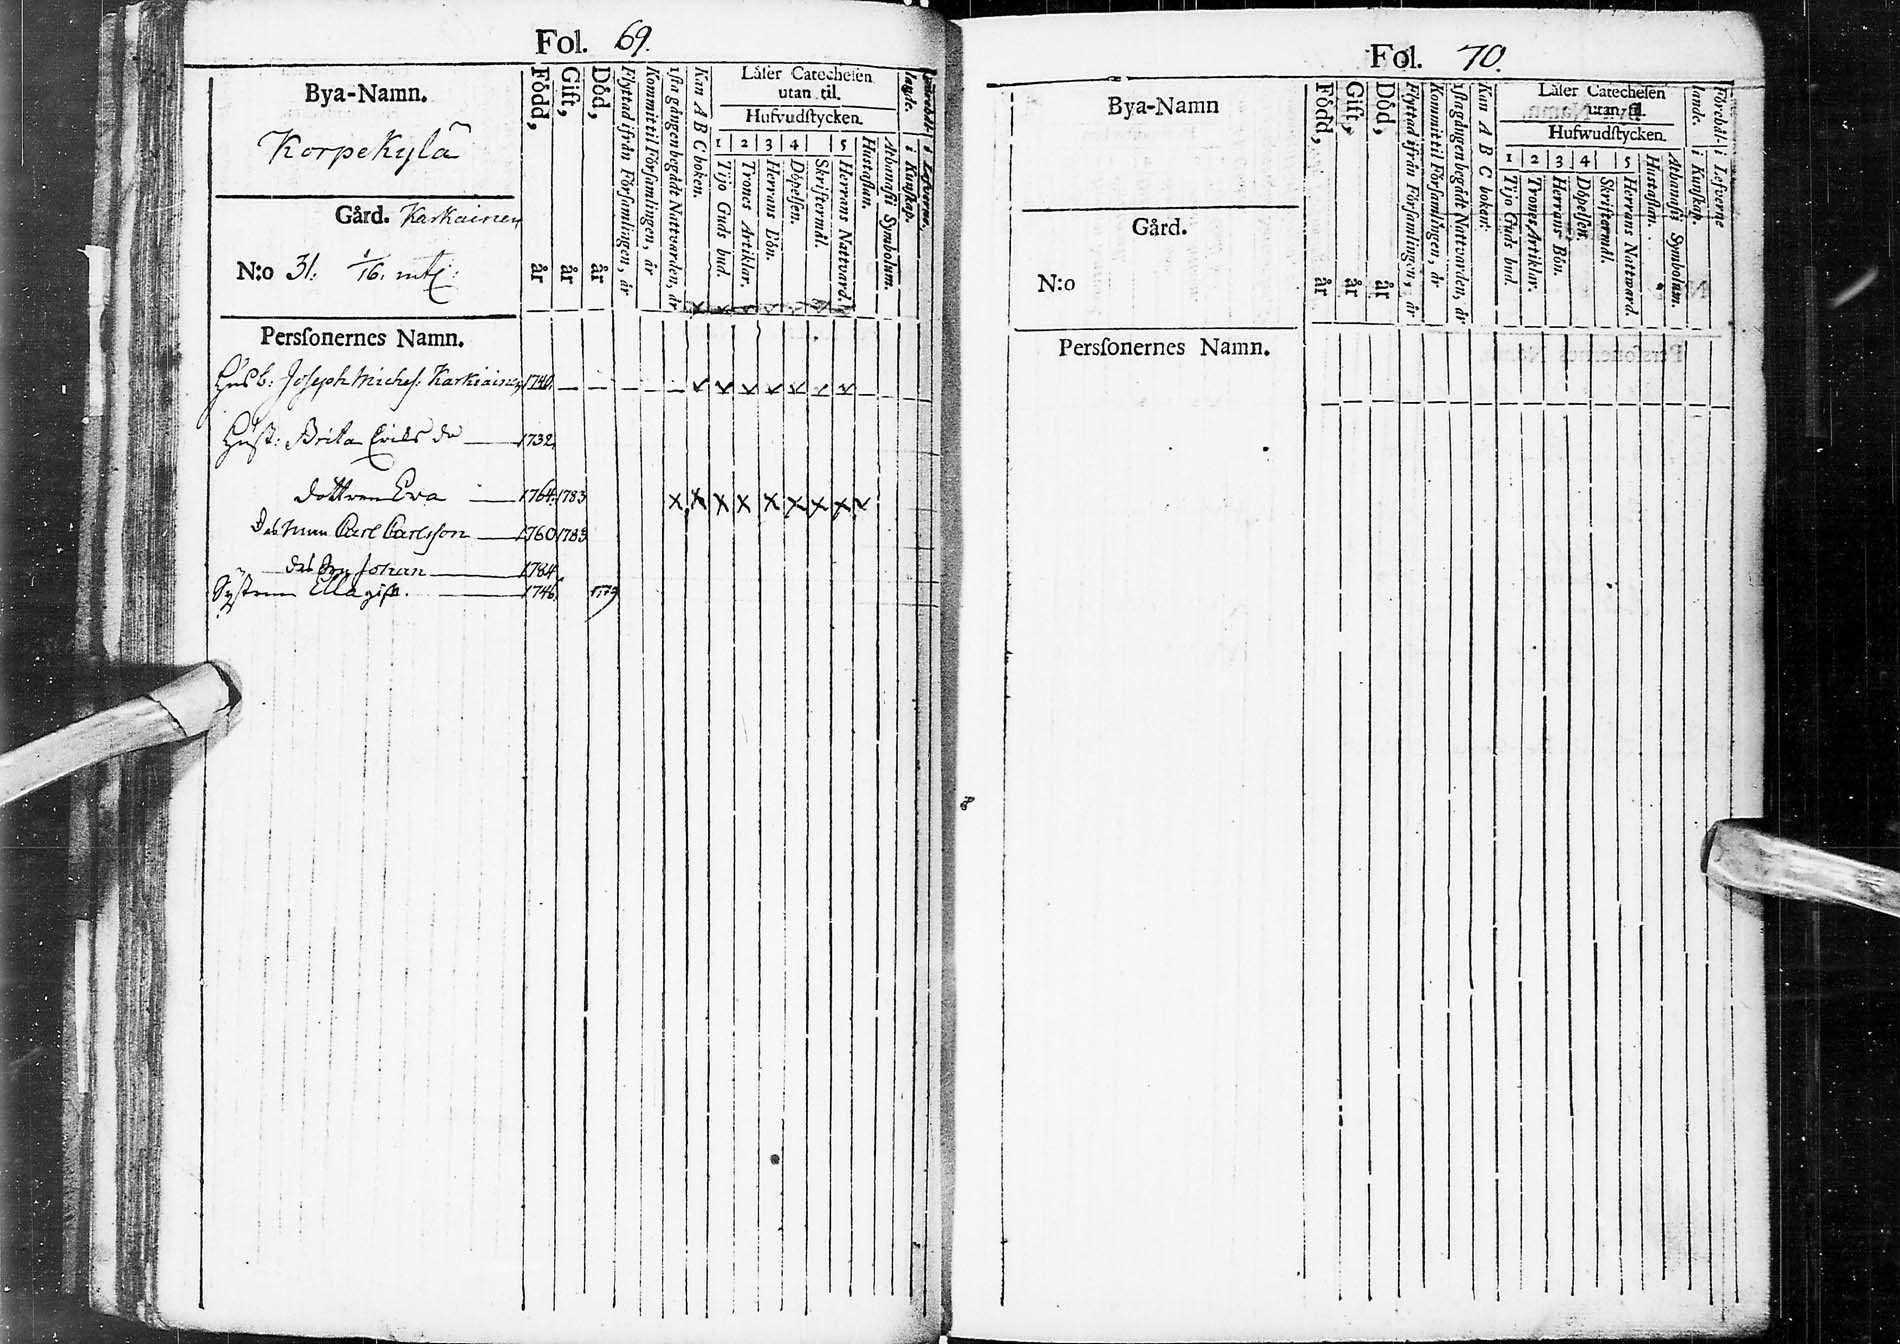 Fol. 69.
Bya-Namn.
Korpekylä
Gård. Karkainen
N:o 31. 1/16. mtl:
Född, år
Gift, år
Död, år
Flyttad ifrån Församlingen, år
Kommit til Församlingen, år
1sta gången begådt Nattvarden, år
Kan A B C boken.
Låſer Catecheſen
utan til.
Hufvudſtycken.
1 2 3 4 5
Tijo Guds bud.
Trones Artiklar.
Herrans Bön.
Döpelſen.
Skriftermål.
Herrans Nattvard.
Huſtaflan.
Athanaſii Symbolum.
i Kunſkap.
i Lefverne.
Perſonernes Namn.
Husb: Joseph Michels: Karkiainen 1740. — — — — x x x x x x x
Hust: Brita Erics dr — 1732
dottren Eva — 1764. 1783 x x x x x x x x x
Des man Carl Carlsson — 1760 1783
des Son Johan — 1784
Systren Ella gift. — 1746. 1779
Fol. 70.
Bya-Namn
Gård.
N:o
Född, år
Gift, år
Död, år
Flyttad ifrån Församlingen, år
Kommit til Församlingen, år
1sta gången begådt Nattvarden, år
Kan A B C boken.
Låſer Catecheſen
utan til.
Hufwudſtycken.
1 2 3 4 5
Tijo Guds bud.
Trones Artiklar.
Herrans Bön.
Döpelſen.
Skriftermål.
Herrans Nattward.
Huſtaflan.
Athanaſii Symbolum.
i Kunſkap.
i Lefverne
Perſonernes Namn.